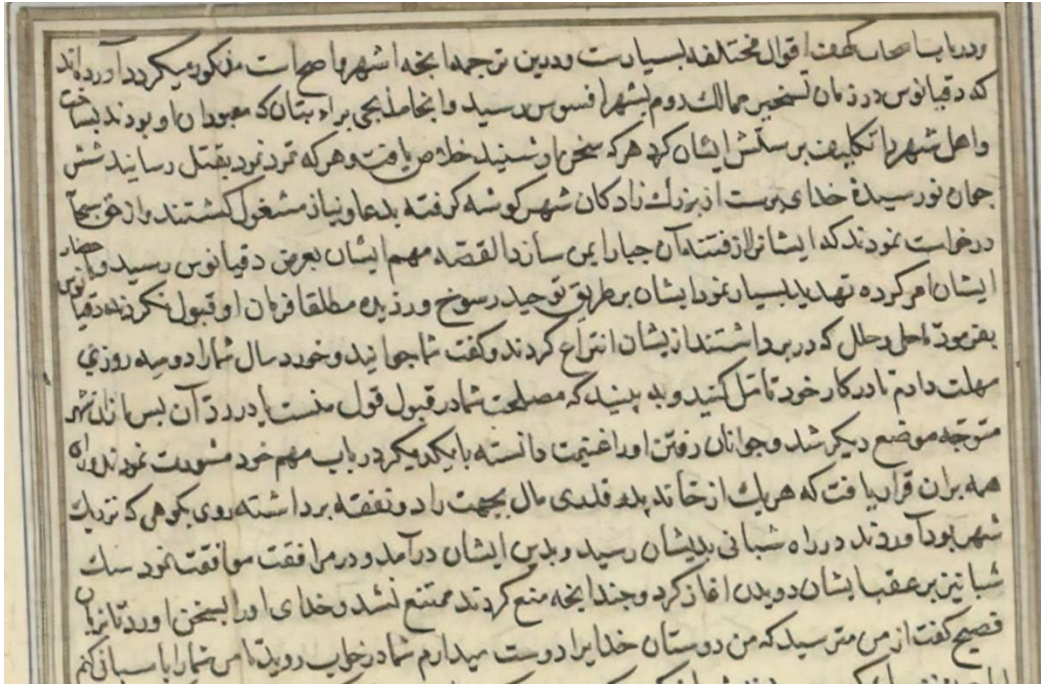 ودر باب اصحاب کهف اقوال مختلفه بسیارست ودرین ترجمه انچه اشهر واصح است مذکور میکردد آورده‌اند
که دقیانوس در زمان تسخیر ممالک روم بشهر افسوس رسید وانجا مذبحی براء بتان که معبودان او بودند بساخت
واهل شهر را تکلیف پرستش ایشان کرد هرکه سخن او شنید خلاص یافت وهرکه تمرد نمود بقتل رسانید شش
جوان نورسیدۀ خدای پرست از بزرک زادکان شهر کوشه کرفته بدعا ونیاز مشغول کشتند واز حق سبحانه
درخواست نمودند که ایشانرا از فتنه آن جبار ایمن سازد القصه مهم ایشان بعرض دقیانوس رسید و باحضار
ایشان امر کرده تهدید بسیار نمود ایشان بر طریق توحید رسوخ ورزیده مطلقا فرمان او قبول نکردند دقیانوس
بفرمود تا حلی وحلل که در بر داشتند ازیشان انتزاع کردند وکفت شما جوانید وخورد سال شما را دو سه روزی
مهلت دادم تا در کار خود تامل کنید وبه بینید که مصلحت شما در قبول قول منست یا در رد آن پس از ان شهر
متوجه موضع دیکر شد وجوانان رفتن او را غنیمت دانسته بایکدیکر در باب مهم خود مشورت نمودند وراه
همه بران قرار یافت که هریک از خانه پدر قدری مال بجهت زاد ونفقه برداشته روی بکوهی که نزدیک
شهر بود آوردند در راه شبانی بدیشان رسید وبدین ایشان درآمد ودر مرافقت موافقت نمود سک
شبان نیز بر عقب ایشان دویدن اغاز کرد وچندانچه منع کردند ممتنع نشد وخدای او را بسخن اورد تا بزبان
فصیح کفت از من مترسید که من دوستان خدایرا دوست میدارم شما در خواب روید تا من شما را پاسبانی کنم